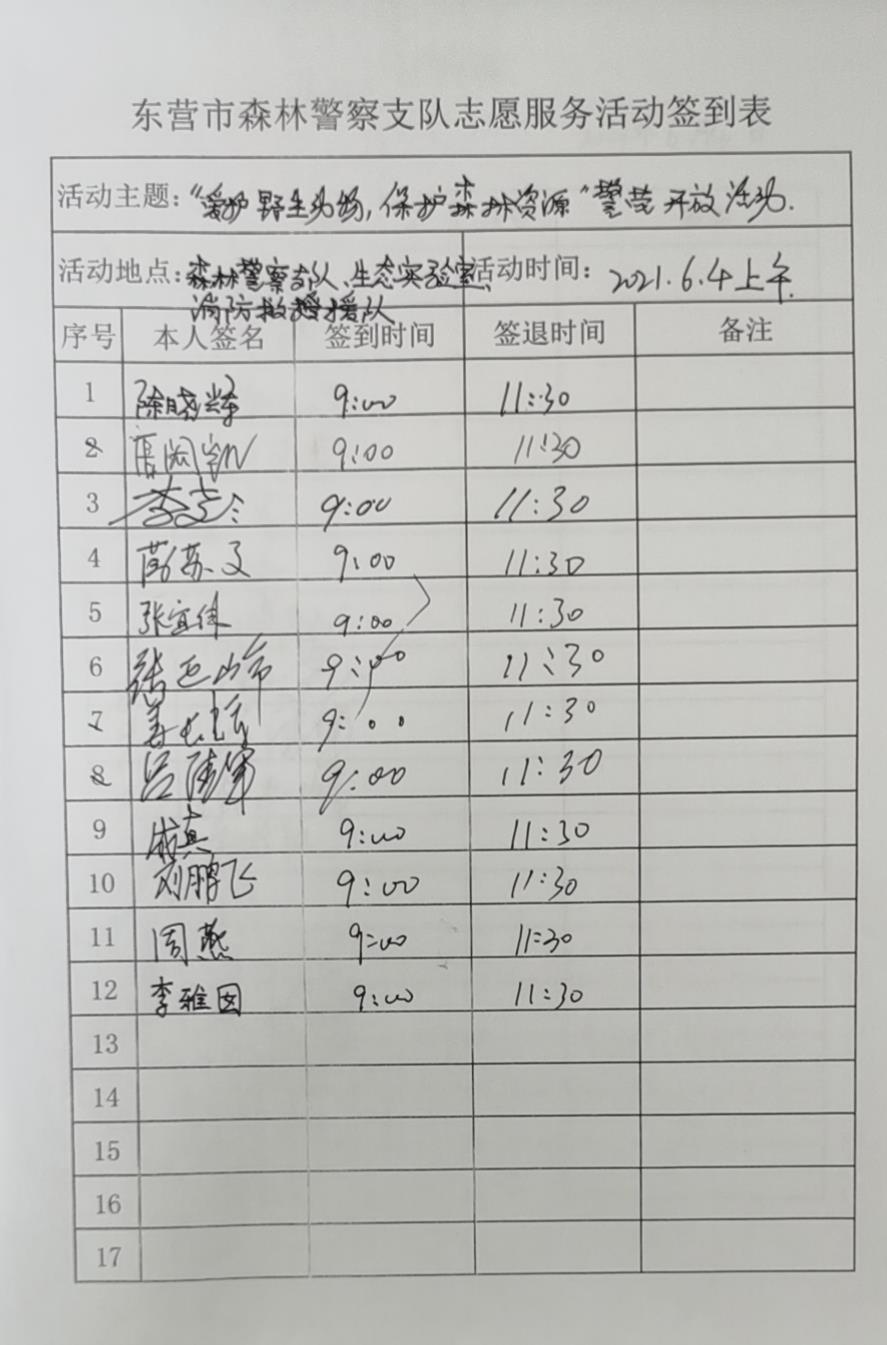 东营市森林警察支队志愿服务活动签到表
活动主题："爱护野生动物,保护森林资源"警营开放活动.
活动地点：森林警察支队、生态实验室、 活动时间： 2021.6.4上午.
消防救援队
序号 本人签名 签到时间 签退时间 备注
1 陈晓辉 9:00 11:30
2 9:00 11:30
3 9:00 11:30
4 苏文 9:00 11:30
5 张宜伟 9:00 11:30
6 9:00 11:30
7 9:00 11:30
8 吕 9:00 11:30
9 成真 9:00 11:30
10 刘鹏飞 9:00 11:30
11 周燕 9:00 11:30
12 李雅囡 9:00 11:30
13
14
15
16
17